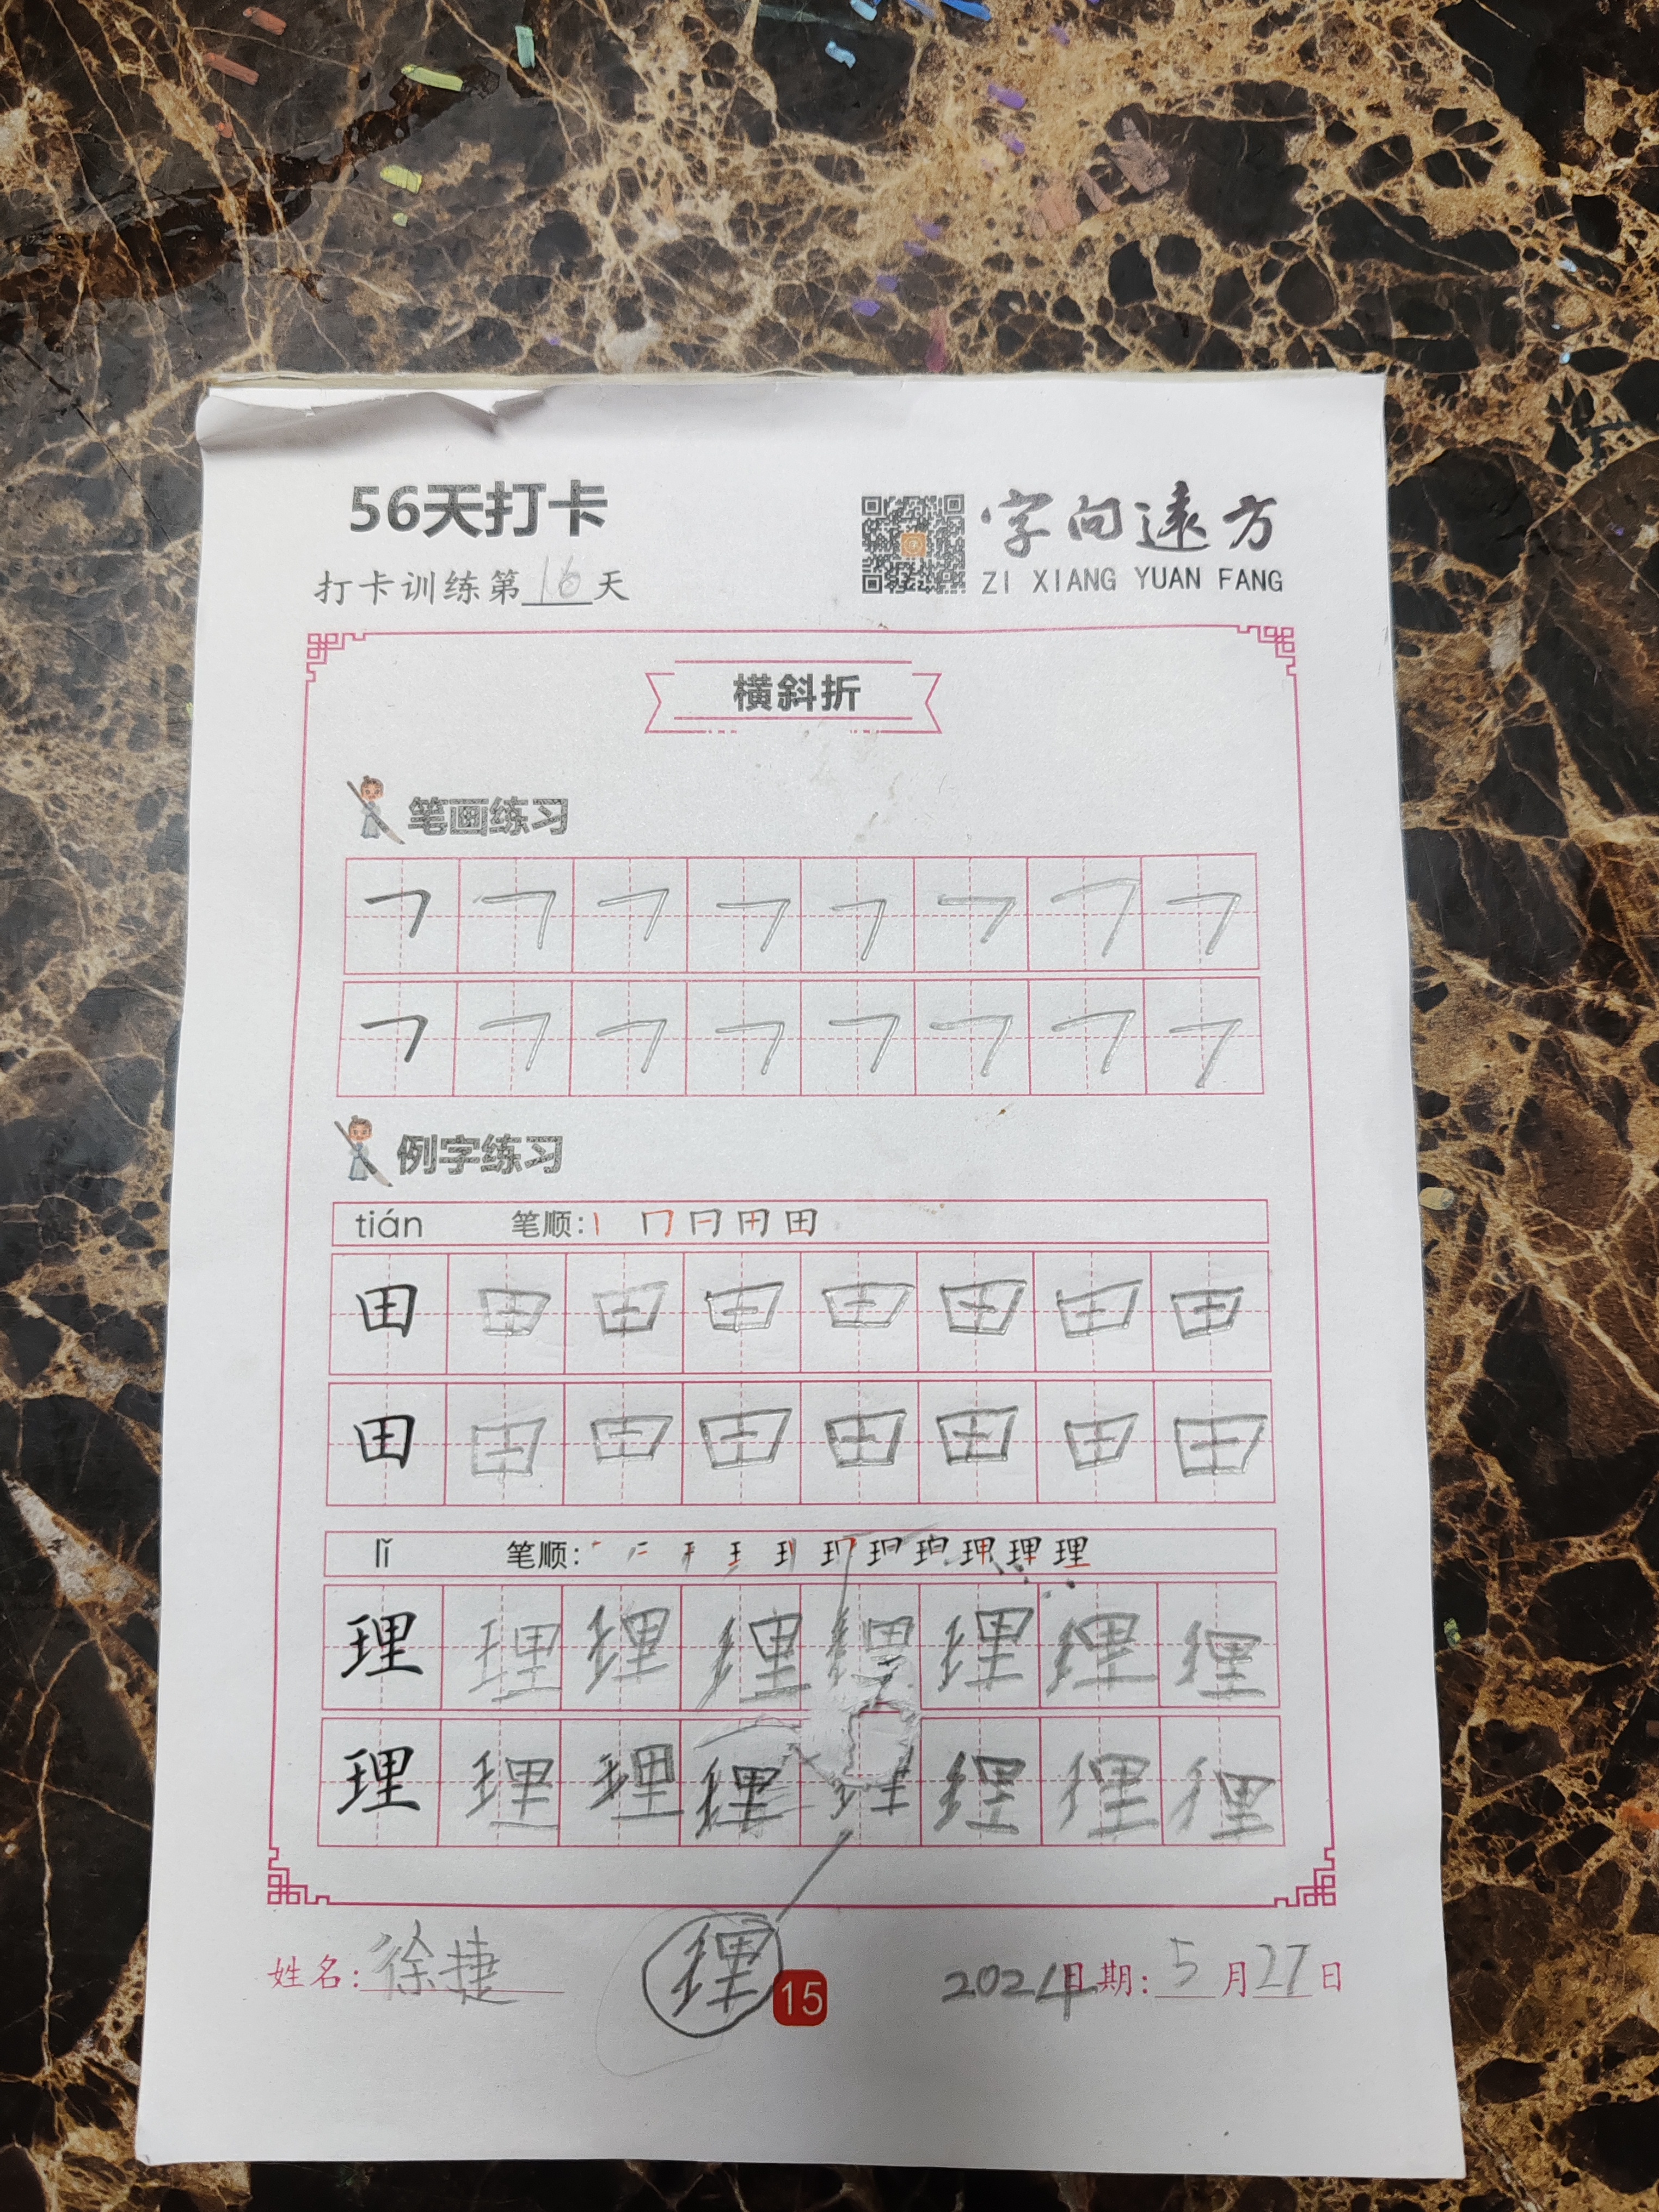 56天打卡
字向遠方
ZI XIANG YUAN FANG
打卡训练第16天
横斜折
笔画练习
㇇ ㇇ ㇇ ㇇ ㇇ ㇇ ㇇ ㇇
㇇ ㇇ ㇇ ㇇ ㇇ ㇇ ㇇ ㇇
例字练习
tián 笔顺: 丨 冂 日 田 田
田 田 田 田 田 田 田 田
田 田 田 田 田 田 田 田
lǐ 笔顺: 理
理 理 理 理 理 理 理 理
理 理 理 理 理 理 理 理
姓名: 徐捷
理
15
2024日期: 5月27日